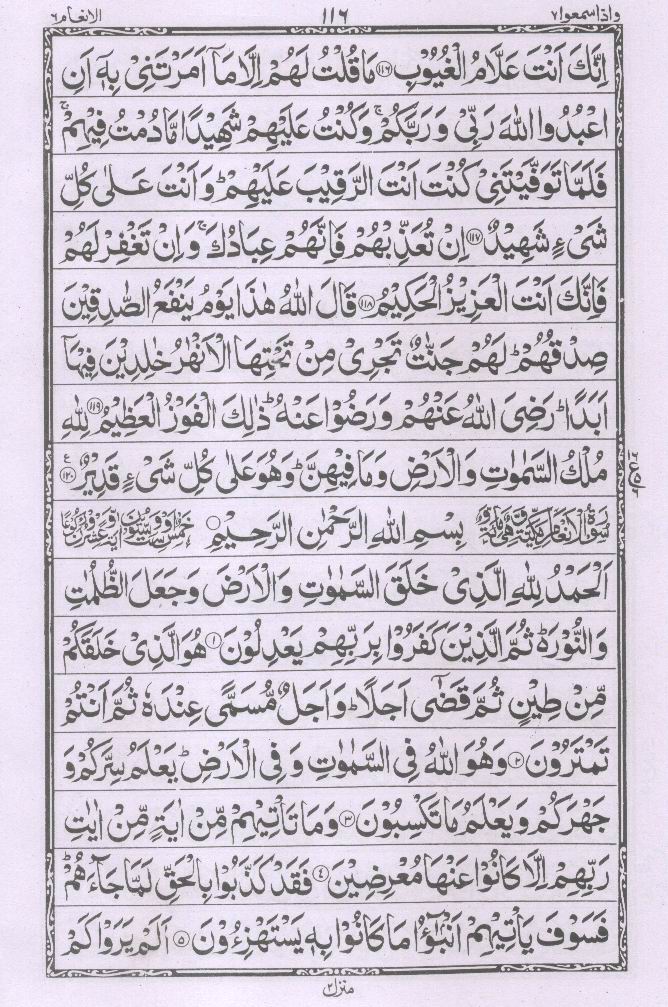 واذا سمعوا ٧ ١١٦ الانعام ٦
اِنَّكَ اَنْتَ عَلَّامُ الْغُيُوْبِ ﴿۱۱۶﴾ مَا قُلْتُ لَهُمْ اِلَّا مَاۤ اَمَرْتَنِیْ بِهٖۤ اَنِ
اعْبُدُوا اللّٰهَ رَبِّیْ وَ رَبَّكُمْ ۚ وَكُنْتُ عَلَيْهِمْ شَهِيْدًا مَّا دُمْتُ فِيْهِمْ ۚ
فَلَمَّا تَوَفَّيْتَنِیْ كُنْتَ اَنْتَ الرَّقِيْبَ عَلَيْهِمْ ؕ وَ اَنْتَ عَلٰی كُلِّ
شَیْءٍ شَهِيْدٌ ﴿۱۱۷﴾ اِنْ تُعَذِّبْهُمْ فَاِنَّهُمْ عِبَادُكَ ۚ وَ اِنْ تَغْفِرْ لَهُمْ
فَاِنَّكَ اَنْتَ الْعَزِيْزُ الْحَكِيْمُ ﴿۱۱۸﴾ قَالَ اللّٰهُ هٰذَا يَوْمُ يَنْفَعُ الصّٰدِقِيْنَ
صِدْقُهُمْ ؕ لَهُمْ جَنّٰتٌ تَجْرِیْ مِنْ تَحْتِهَا الْاَنْهٰرُ خٰلِدِيْنَ فِيْهَاۤ
اَبَدًا ؕ رَضِیَ اللّٰهُ عَنْهُمْ وَرَضُوْا عَنْهُ ؕ ذٰلِكَ الْفَوْزُ الْعَظِيْمُ ﴿۱۱۹﴾ لِلّٰهِ
مُلْكُ السَّمٰوٰتِ وَ الْاَرْضِ وَ مَا فِيْهِنَّ ؕ وَهُوَ عَلٰی كُلِّ شَیْءٍ قَدِيْرٌ ﴿۱۲۰﴾ ع
سُوْرَةُ الْاَنْعَامِ مَكِّيَّةٌ بِسْمِ اللّٰهِ الرَّحْمٰنِ الرَّحِيْمِ
اَلْحَمْدُ لِلّٰهِ الَّذِیْ خَلَقَ السَّمٰوٰتِ وَ الْاَرْضَ وَ جَعَلَ الظُّلُمٰتِ
وَ النُّوْرَ ؕ ثُمَّ الَّذِيْنَ كَفَرُوْا بِرَبِّهِمْ يَعْدِلُوْنَ ﴿۱﴾ هُوَ الَّذِیْ خَلَقَكُمْ
مِّنْ طِيْنٍ ثُمَّ قَضٰۤی اَجَلًا ؕ وَ اَجَلٌ مُّسَمًّی عِنْدَهٗ ثُمَّ اَنْتُمْ
تَمْتَرُوْنَ ﴿۲﴾ وَهُوَ اللّٰهُ فِی السَّمٰوٰتِ وَ فِی الْاَرْضِ ؕ يَعْلَمُ سِرَّكُمْ وَ
جَهْرَكُمْ وَ يَعْلَمُ مَا تَكْسِبُوْنَ ﴿۳﴾ وَ مَا تَاْتِيْهِمْ مِّنْ اٰيَةٍ مِّنْ اٰيٰتِ
رَبِّهِمْ اِلَّا كَانُوْا عَنْهَا مُعْرِضِيْنَ ﴿۴﴾ فَقَدْ كَذَّبُوْا بِالْحَقِّ لَمَّا جَآءَهُمْ ؕ
فَسَوْفَ يَاْتِيْهِمْ اَنْۢبٰٓؤُا مَا كَانُوْا بِهٖ يَسْتَهْزِءُوْنَ ﴿۵﴾ اَلَمْ يَرَوْا كَمْ
منزل ٢